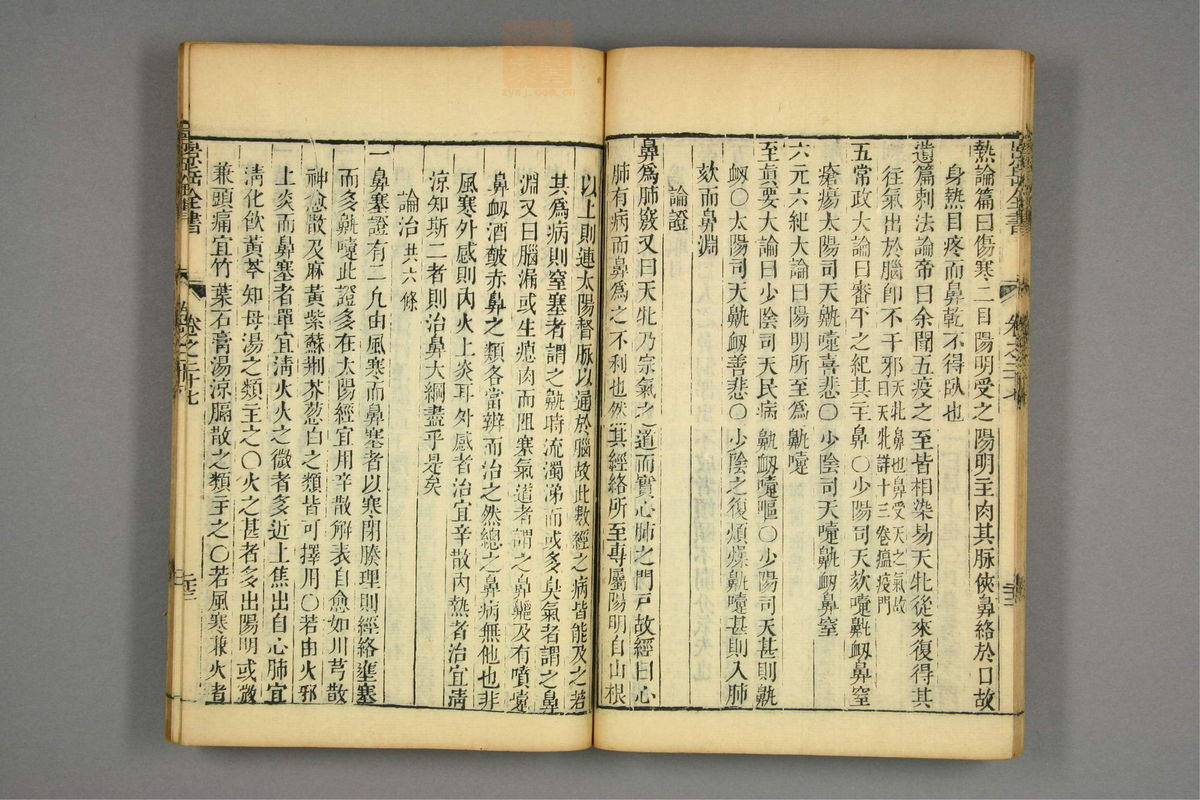 熱論篇曰傷寒二日陽明受之陽明主肉其脉俠鼻絡於口故
身熱目疼而鼻乾不得臥也
遺篇刺法論帝曰余聞五疫之至皆相染易天牝從來復得其
往氣出於腦卽不干邪天牝鼻也鼻受天之氣故曰天牝詳十三卷瘟疫門
五常政大論曰審平之紀其主鼻〇少陽司天欬嚏鼽衂鼻窒
瘡瘍太陽司天鼽嚏喜悲〇少陰司天嚏鼽衂鼻窒
六元六紀大論曰陽明所至爲鼽嚏
至眞要大論曰少陰司天民病鼽衂嚏嘔〇少陽司天甚則鼽
衂〇太陽司天鼽衂善悲〇少陰之復煩燥鼽嚏甚則入肺
欬而鼻淵
論證
鼻爲肺竅又曰天牝乃宗氣之道而實心肺之門戸故經曰心
肺有病而鼻爲之不利也然其經絡所至專屬陽明自山根
以上則連太陽督脉以通於腦故此數經之病皆能及之若
其爲病則窒塞者謂之鼽時流濁涕而或多臭氣者謂之鼻
淵又曰腦漏或生瘜肉而阻塞氣道者謂之鼻齆及有噴嚏
鼻衂酒皶赤鼻之類各當辨而治之然總之鼻病無他也非
風寒外感則內火上炎耳外感者治宜辛散內熱者治宜淸
涼知斯二者則治鼻大綱盡乎是矣
論治共六條
一鼻塞證有二凢由風寒而鼻塞者以寒閉腠理則經絡壅塞
而多鼽嚏此證多在太陽經宜用辛散解表自愈如川芎散
神愈散及麻黃紫蘇荆芥葱白之類皆可擇用〇若由火邪
上炎而鼻塞者單宜淸火火之微者多近上焦出自心肺宜
淸化飮黃芩知母湯之類主之〇火之甚者多出陽明或微
兼頭痛宜竹葉石膏湯涼膈散之類主之〇若風寒兼火者
景岳全書
卷之二十七
景岳全書
卷之二十七